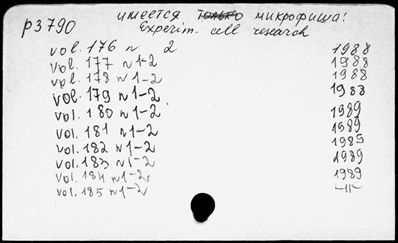 имеется только микрофиша!
р3790 Experim. cell research
vol. 176 n 2 1988
vol. 177 n 1-2 1988
vol. 178 n 1-2 1988
vol. 179 n 1-2 1988
vol. 180 n 1-2 1989
vol. 181 n 1-2 1989
vol. 182 n 1-2 1989
vol. 183 n 1-2 1989
vol. 184 n 1-2 1989
vol. 185 n 1-2 -"-